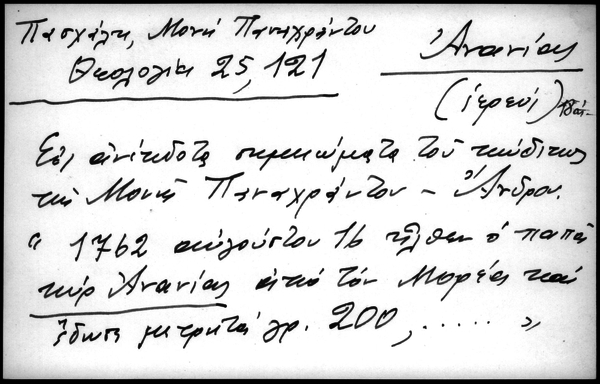 Πασχάλη, Μονή Παναχράντου
Θεολογία 25, 121
Ἀνανίας
(ἱερεύς) 18 αἰ.
Εἰς ἀνέκδοτα σημειώματα τοῦ κώδικος
τῆς Μονῆς Παναχράντου - Ἄνδρου.
" 1762 αὐγούστου 16 ἦλθεν ὁ παπᾶ
κύρ Ἀνανίας ἀπό τόν Μορέαν καί
ἔδωσε μετρητά γρ. 200, ...... "